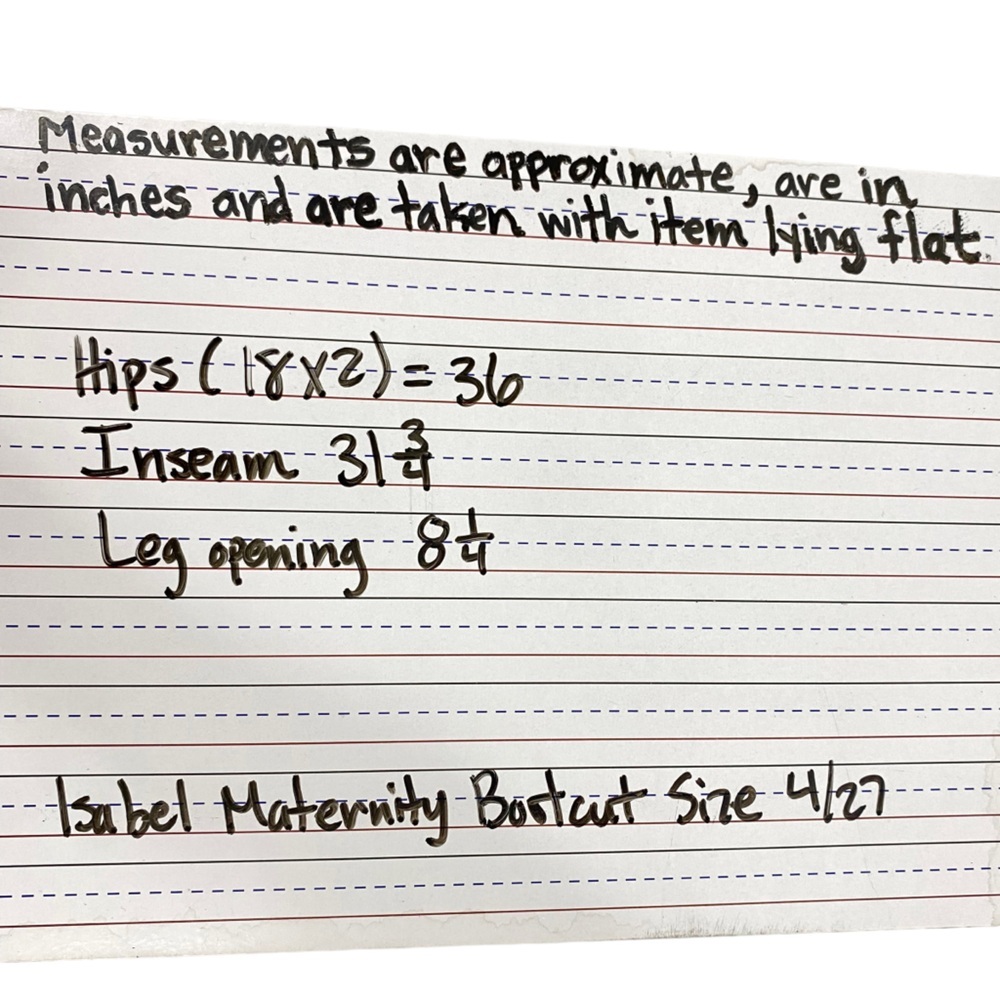 Measurements are approximate, are in
inches and are taken with item lying flat.
Hips (18x2) = 36
Inseam 31 3/4
Leg opening 8 1/4
Isabel Maternity Bootcut Size 4/27